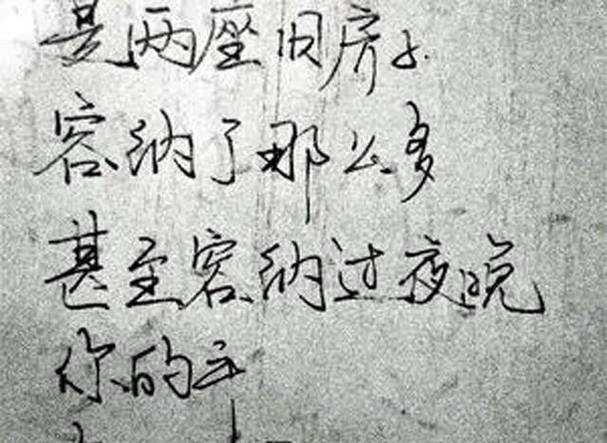 是两座旧房子
容纳了那么多
甚至容纳过夜晚
你的手